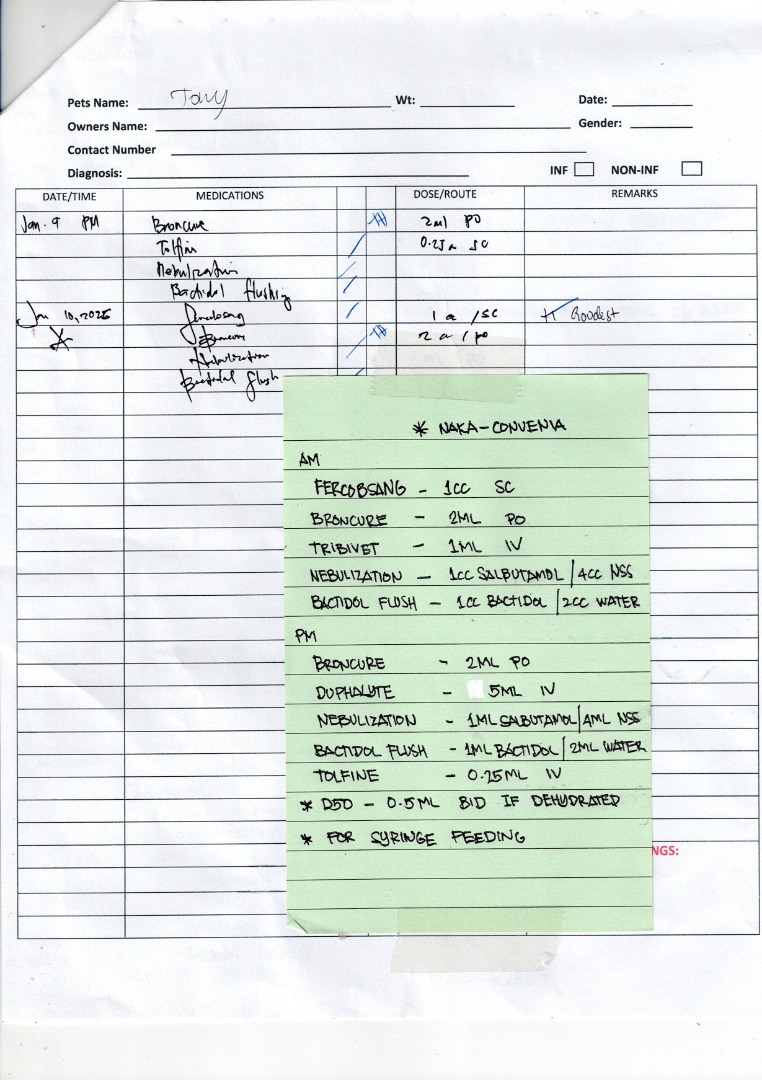 Pets Name: Tory Wt: Date:
Owners Name: Gender:
Contact Number
Diagnosis: INF NON-INF
DATE/TIME MEDICATIONS DOSE/ROUTE REMARKS
Jan. 9 PM Broncure 2ml PO
Tolfin SC
Nebulization
Bactidol flushing
Jan 10, 2025 1 cc /SC
Broncure 2 cc / PO
Nebulization
Bactidol flush
* NAKA-CONVENIA
AM
FERCOBSANG - 1CC SC
BRONCURE - 2ML PO
TRIBIVET - 1ML IV
NEBULIZATION - 1CC SALBUTAMOL/4CC NSS
BACTIDOL FLUSH - 1CC BACTIDOL/2CC WATER
PM
BRONCURE - 2ML PO
DUPHALYTE - 5ML IV
NEBULIZATION - 1ML SALBUTAMOL/4ML NSS
BACTIDOL FLUSH - 1ML BACTIDOL/2ML WATER
TOLFINE - 0.25ML IV
* D50 - 0.5ML BID IF DEHYDRATED
* FOR SYRINGE FEEDING
NGS: